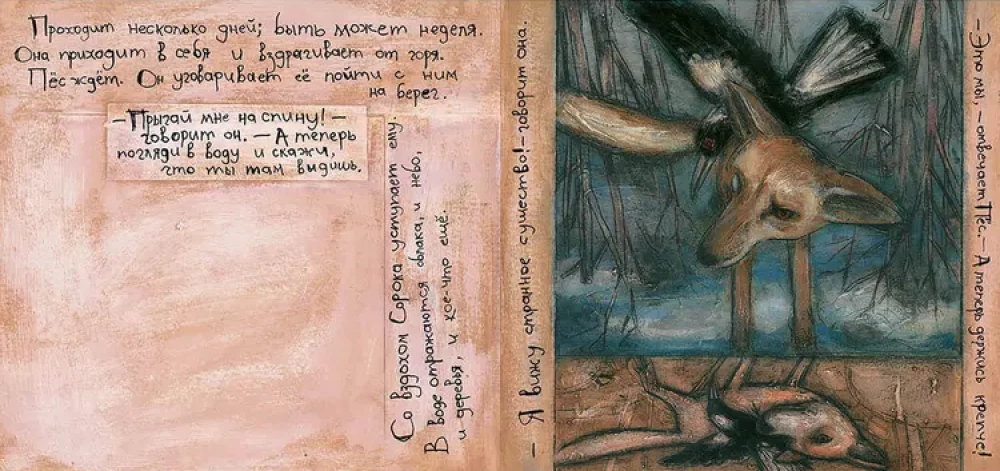 Проходит несколько дней; быть может неделя.
Она приходит в себя и вздрагивает от горя.
Пёс ждёт. Он уговаривает её пойти с ним
на берег.
–Прыгай мне на спину!–
говорит он. – А теперь
погляди в воду и скажи,
что ты там видишь.
Со вздохом Сорока уступает ему.
В воде отражаются облака, и небо,
и деревья, и кое-что ещё.
– Я вижу странное существо!–говорит она.
–Это мы, – отвечает Пёс.– А теперь держись крепче!